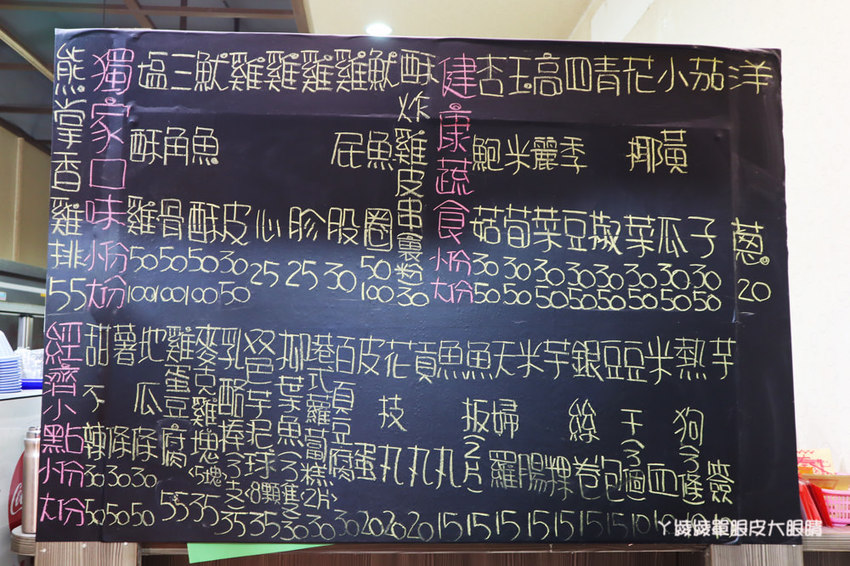 熊掌香雞排 55
獨家口味 小份 大份
塩酥雞 50 100
三角骨 50 100
魷魚酥 50 100
雞皮 30 50
雞心 25
雞胗 25
雞屁股 30
魷魚圈 50 100
酥炸雞皮串裹粉 30
健康蔬食 小份 大份
杏鮑菇 30 50
玉米筍 30 50
高麗菜 30 50
四季豆 30 50
青椒 30 50
花椰菜 30 50
小黃瓜 30 50
茄子 30 50
洋蔥 20
經濟小點 小份 大份
甜不辣 30 50
薯條 30 50
地瓜條 30 50
雞蛋豆腐 55
麥克雞塊<5塊 35
乳酪棒3支 35
双色芋泥球<8顆 35
柳葉魚<3隻 30
港式蘿蔔糕<2片> 30
百頁豆腐 30
皮蛋 20
花枝丸 20
貢丸 20
魚丸 15
魚板<2片 15
天婦羅 15
米腸 15
芋粿 15
銀絲卷 15
豆包 15
豆干<3個 10
米血 10
熱狗3條 10
芋簽 10
ㄚ綾綾單眼皮大眼睛